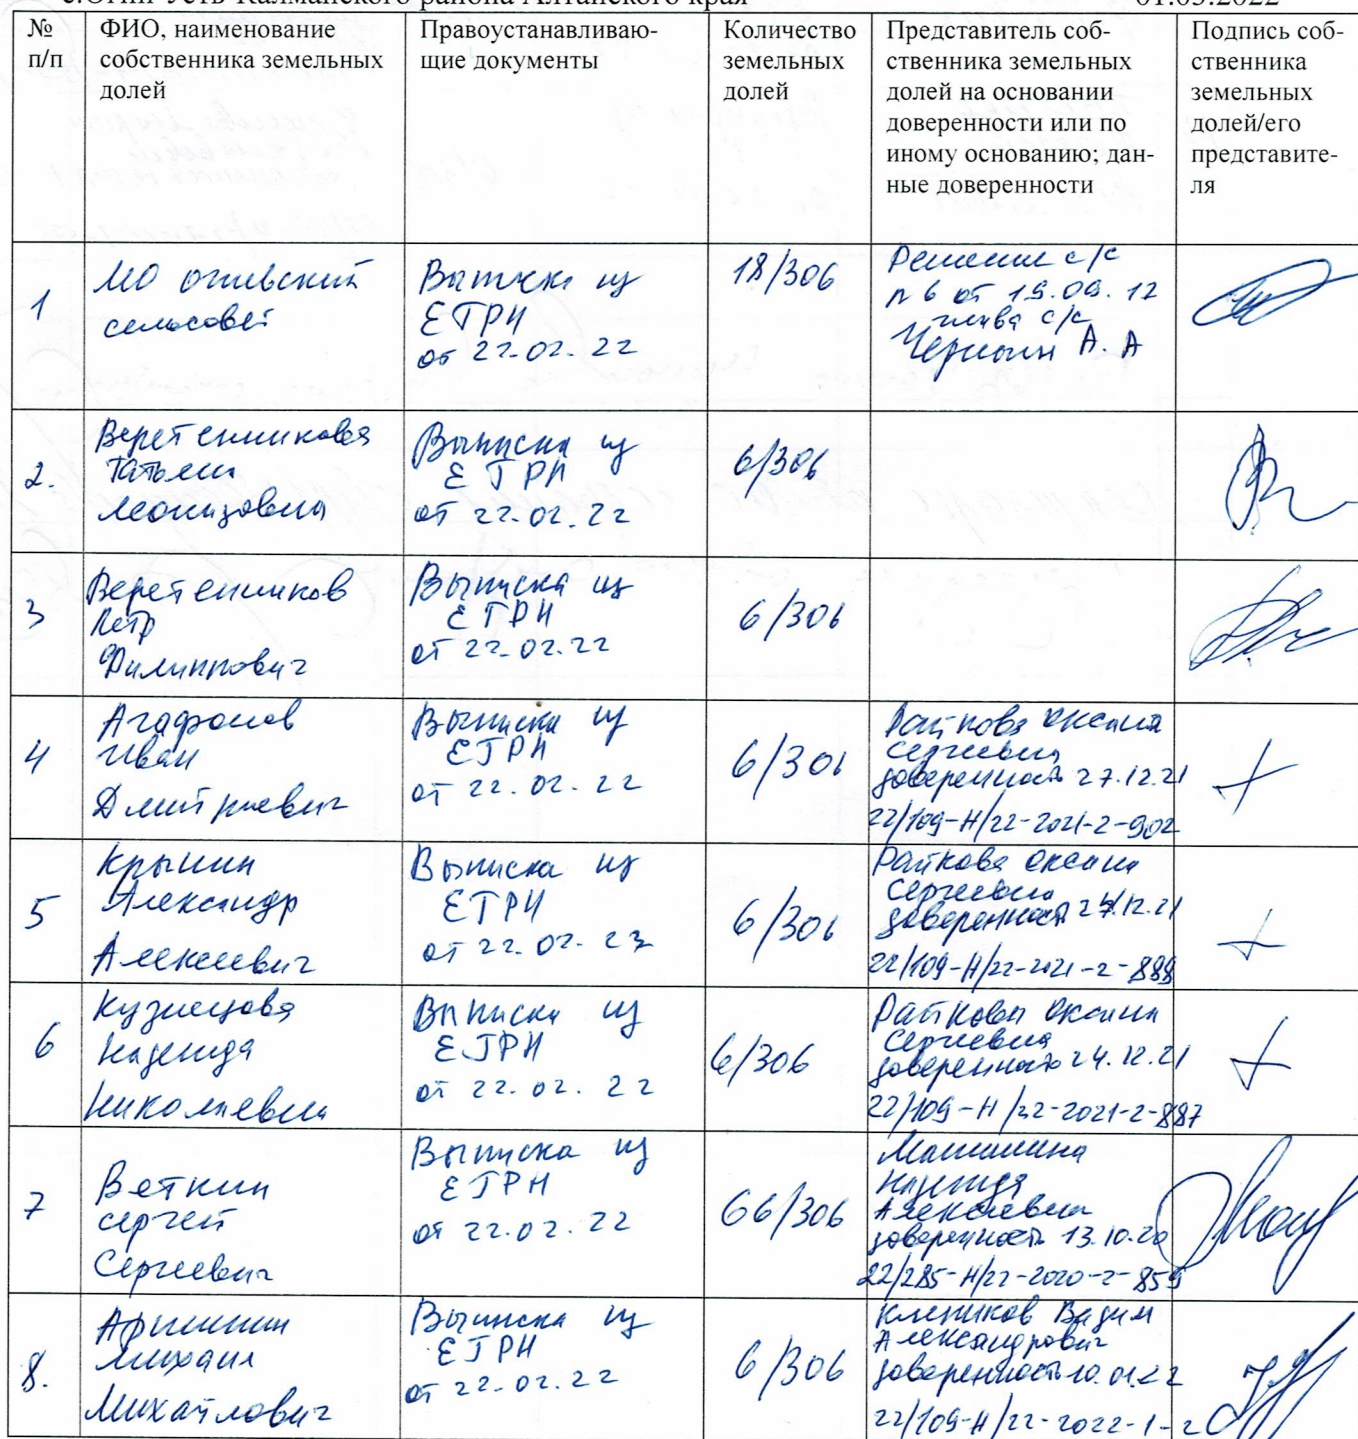 с.Огни Усть-Калманского района Алтайского края 01.03.2022
№ п/п
ФИО, наименование
собственника земельных
долей
Правоустанавливаю-
щие документы
Количество
земельных
долей
Представитель соб-
ственника земельных
долей на основании
доверенности или по
иному основанию; дан-
ные доверенности
Подпись соб-
ственника
земельных
долей/его
представите-
ля
1
МО Огневский
сельсовет
Выписка из
ЕГРН
от 22.02.22
18/306
Решение с/с
№ 6 от 19.09.17
глава с/с
А. А
2.
Веретенникова
Татьяна
Леонидовна
Выписка из
ЕГРН
от 22.02.22
6/306
3
Веретенников
Петр
Филиппович
Выписка из
ЕГРН
от 22.02.22
6/306
4
Агафонов
Иван
Дмитриевич
Выписка из
ЕГРН
от 22.02.22
6/306
Райкова Оксана
Сергеевна
доверенность 27.12.21
22/109-Н/22-2021-2-902
5
Крынин
Александр
Алексеевич
Выписка из
ЕГРН
от 22.02.22
6/306
Райкова Оксана
Сергеевна
доверенность 24.12.21
22/109-Н/22-2021-2-889
6
Кузнецова
Надежда
Николаевна
Выписка из
ЕГРН
от 22.02.22
6/306
Райкова Оксана
Сергеевна
доверенность 24.12.21
22/109-Н/22-2021-2-887
7
Веткин
Сергей
Сергеевич
Выписка из
ЕГРН
от 22.02.22
66/306
Надежда
Алексеевна
доверенность 13.10.20
22/285-Н/22-2020-2-859
8.
Михаил
Михайлович
Выписка из
ЕГРН
от 22.02.22
6/306
Вадим
Александрович
доверенность 10.01.22
22/109-Н/22-2022-1-2